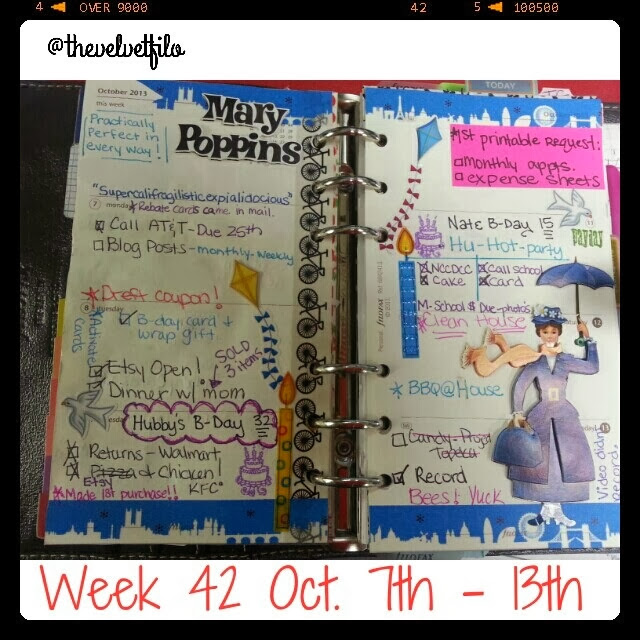 4 OVER 9000 42 5 100500
@thevelvetfilo
October 2013
this week
Practically
Perfect in
every way!
Mary
Poppins
"Supercalifragilisticexpialidocious"
7 monday *Rebate Cards came in mail.
Call AT&T-Due 25th
Blog Posts-monthly-weekly
*Dreft coupon!
8 tuesday
Activate
Cards
B-day card +
wrap gift
Etsy Open!
SOLD
3 items
Dinner w/ mom
Hubby's B-Day 32
Returns - Walmart
Pizza & Chicken!
KFC
*Made 1st purchase!!
TODAY
*1st printable request:
monthly appts.
expense sheets
11
Nate B-Day 15
PAYDAY
Hu-Hot-party
NCDCC Call school
Cake Card
M-School $ Due-photos
*Clean House
12
*BBQ@House
13
Candy-Proj
Topeka
Record
Bees! Yuck
Video didn't
record.
Week 42 Oct. 7th - 13th